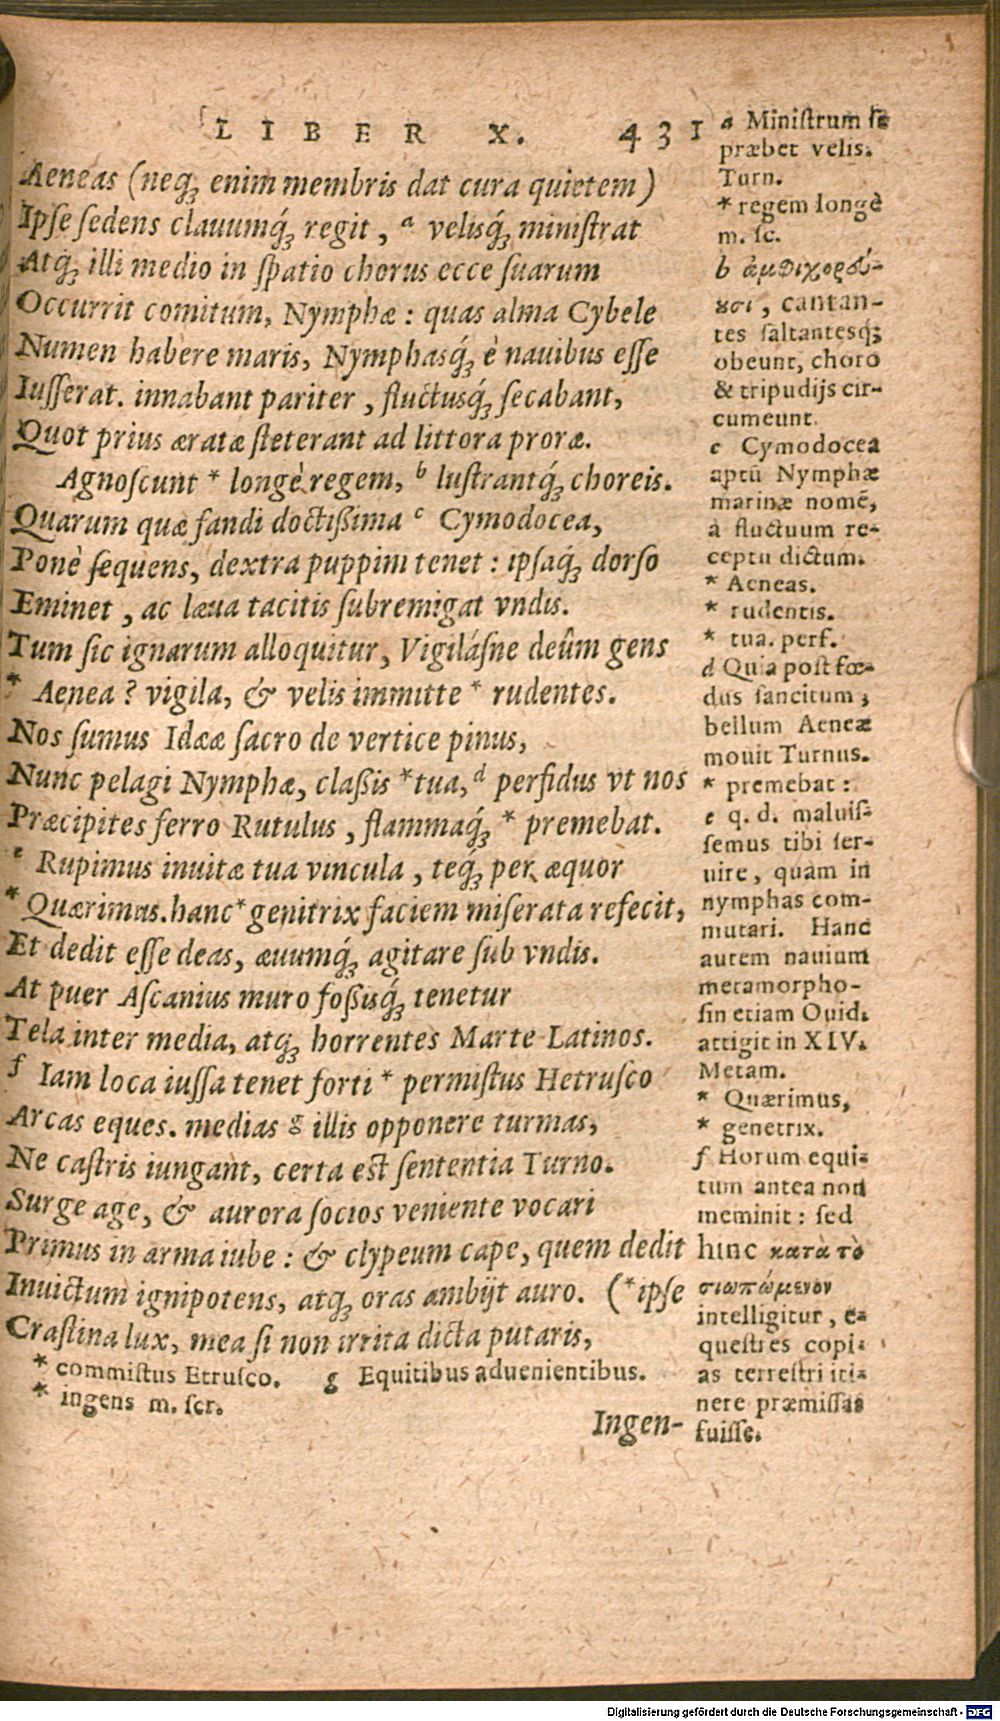 LIBER X. 431
Aeneas (neq́ꝫ enim membris dat cura quietem)
Ipſe ſedens clauumq́ꝫ regit, ᵃ velisq́ꝫ miniſtrat
Atq́ꝫ illi medio in ſpatio chorus ecce ſuarum
Occurrit comitum, Nymphæ: quas alma Cybele
Numen habere maris, Nymphasq́ꝫ è nauibus eſſe
Iuſſerat. innabant pariter, fluctusq́ꝫ ſecabant,
Quot prius æratæ ſteterant ad littora proræ.
Agnoſcunt * longè regem, ᵇ luſtrantq́ꝫ choreis.
Quarum quæ fandi doctißima ᶜ Cymodocea,
Ponè ſequens, dextra puppim tenet: ipſaq́ꝫ dorſo
Eminet, ac læua tacitis ſubremigat vndis.
Tum ſic ignarum alloquitur, Vigilásne deûm gens
* Aenea? vigila, & velis immitte * rudentes.
Nos ſumus Idææ ſacro de vertice pinus,
Nunc pelagi Nymphæ, claßis * tua, ᵈ perfidus vt nos
Præcipites ferro Rutulus, flammaq́ꝫ * premebat.
ᵉ Rupimus inuitæ tua vincula, teq́ꝫ per æquor
* Quærimus. hanc * genitrix faciem miſerata refecit,
Et dedit eſſe deas, æuumq́ꝫ agitare ſub vndis.
At puer Aſcanius muro foßisq́ꝫ tenetur
Tela inter media, atq́ꝫ horrentes Marte Latinos.
ᶠ Iam loca iuſſa tenet forti * permiſtus Hetruſco
Arcas eques. medias ᵍ illis opponere turmas,
Ne caſtris iungant, certa est ſententia Turno.
Surge age, & aurora ſocios veniente vocari
Primus in arma iube: & clypeum cape, quem dedit
Inuictum ignipotens, atq́ꝫ oras ambijt auro. (* ipſe
Craſtina lux, mea ſi non irrita dicta putaris,
* commiſtus Etruſco. g Equitibus aduenientibus.
* ingens m. ſcr.
Ingen-
a Miniſtrum ſe
præbet velis.
Turn.
* regem longè
m. ſc.
b ἀμφιχορεύ-
ȣσι, cantan-
tes ſaltantesq́ꝫ
obeunt, choro
& tripudijs cir-
cumeunt.
c Cymodocea
aptū Nymphæ
marinæ nomē,
à fluctuum re-
ceptu dictum.
* Aeneas.
* rudentis.
* tua. perf.
d Quia poſt fœ-
dus ſancitum,
bellum Aeneæ
mouit Turnus.
* premebat:
e q. d. maluiſ-
ſemus tibi ſer-
uire, quam in
nymphas com-
mutari. Hanc
autem nauium
metamorpho-
ſin etiam Ouid.
attigit in XIV.
Metam.
* Quærimus,
* genetrix.
f Horum equi-
tum antea non
meminit: ſed
hinc κατὰ τὸ
σιωπώμενον
intelligitur, e-
queſtres copi-
as terreſtri iti-
nere præmiſſas
fuiſſe.
Digitalisierung gefördert durch die Deutsche Forschungsgemeinschaft - DFG